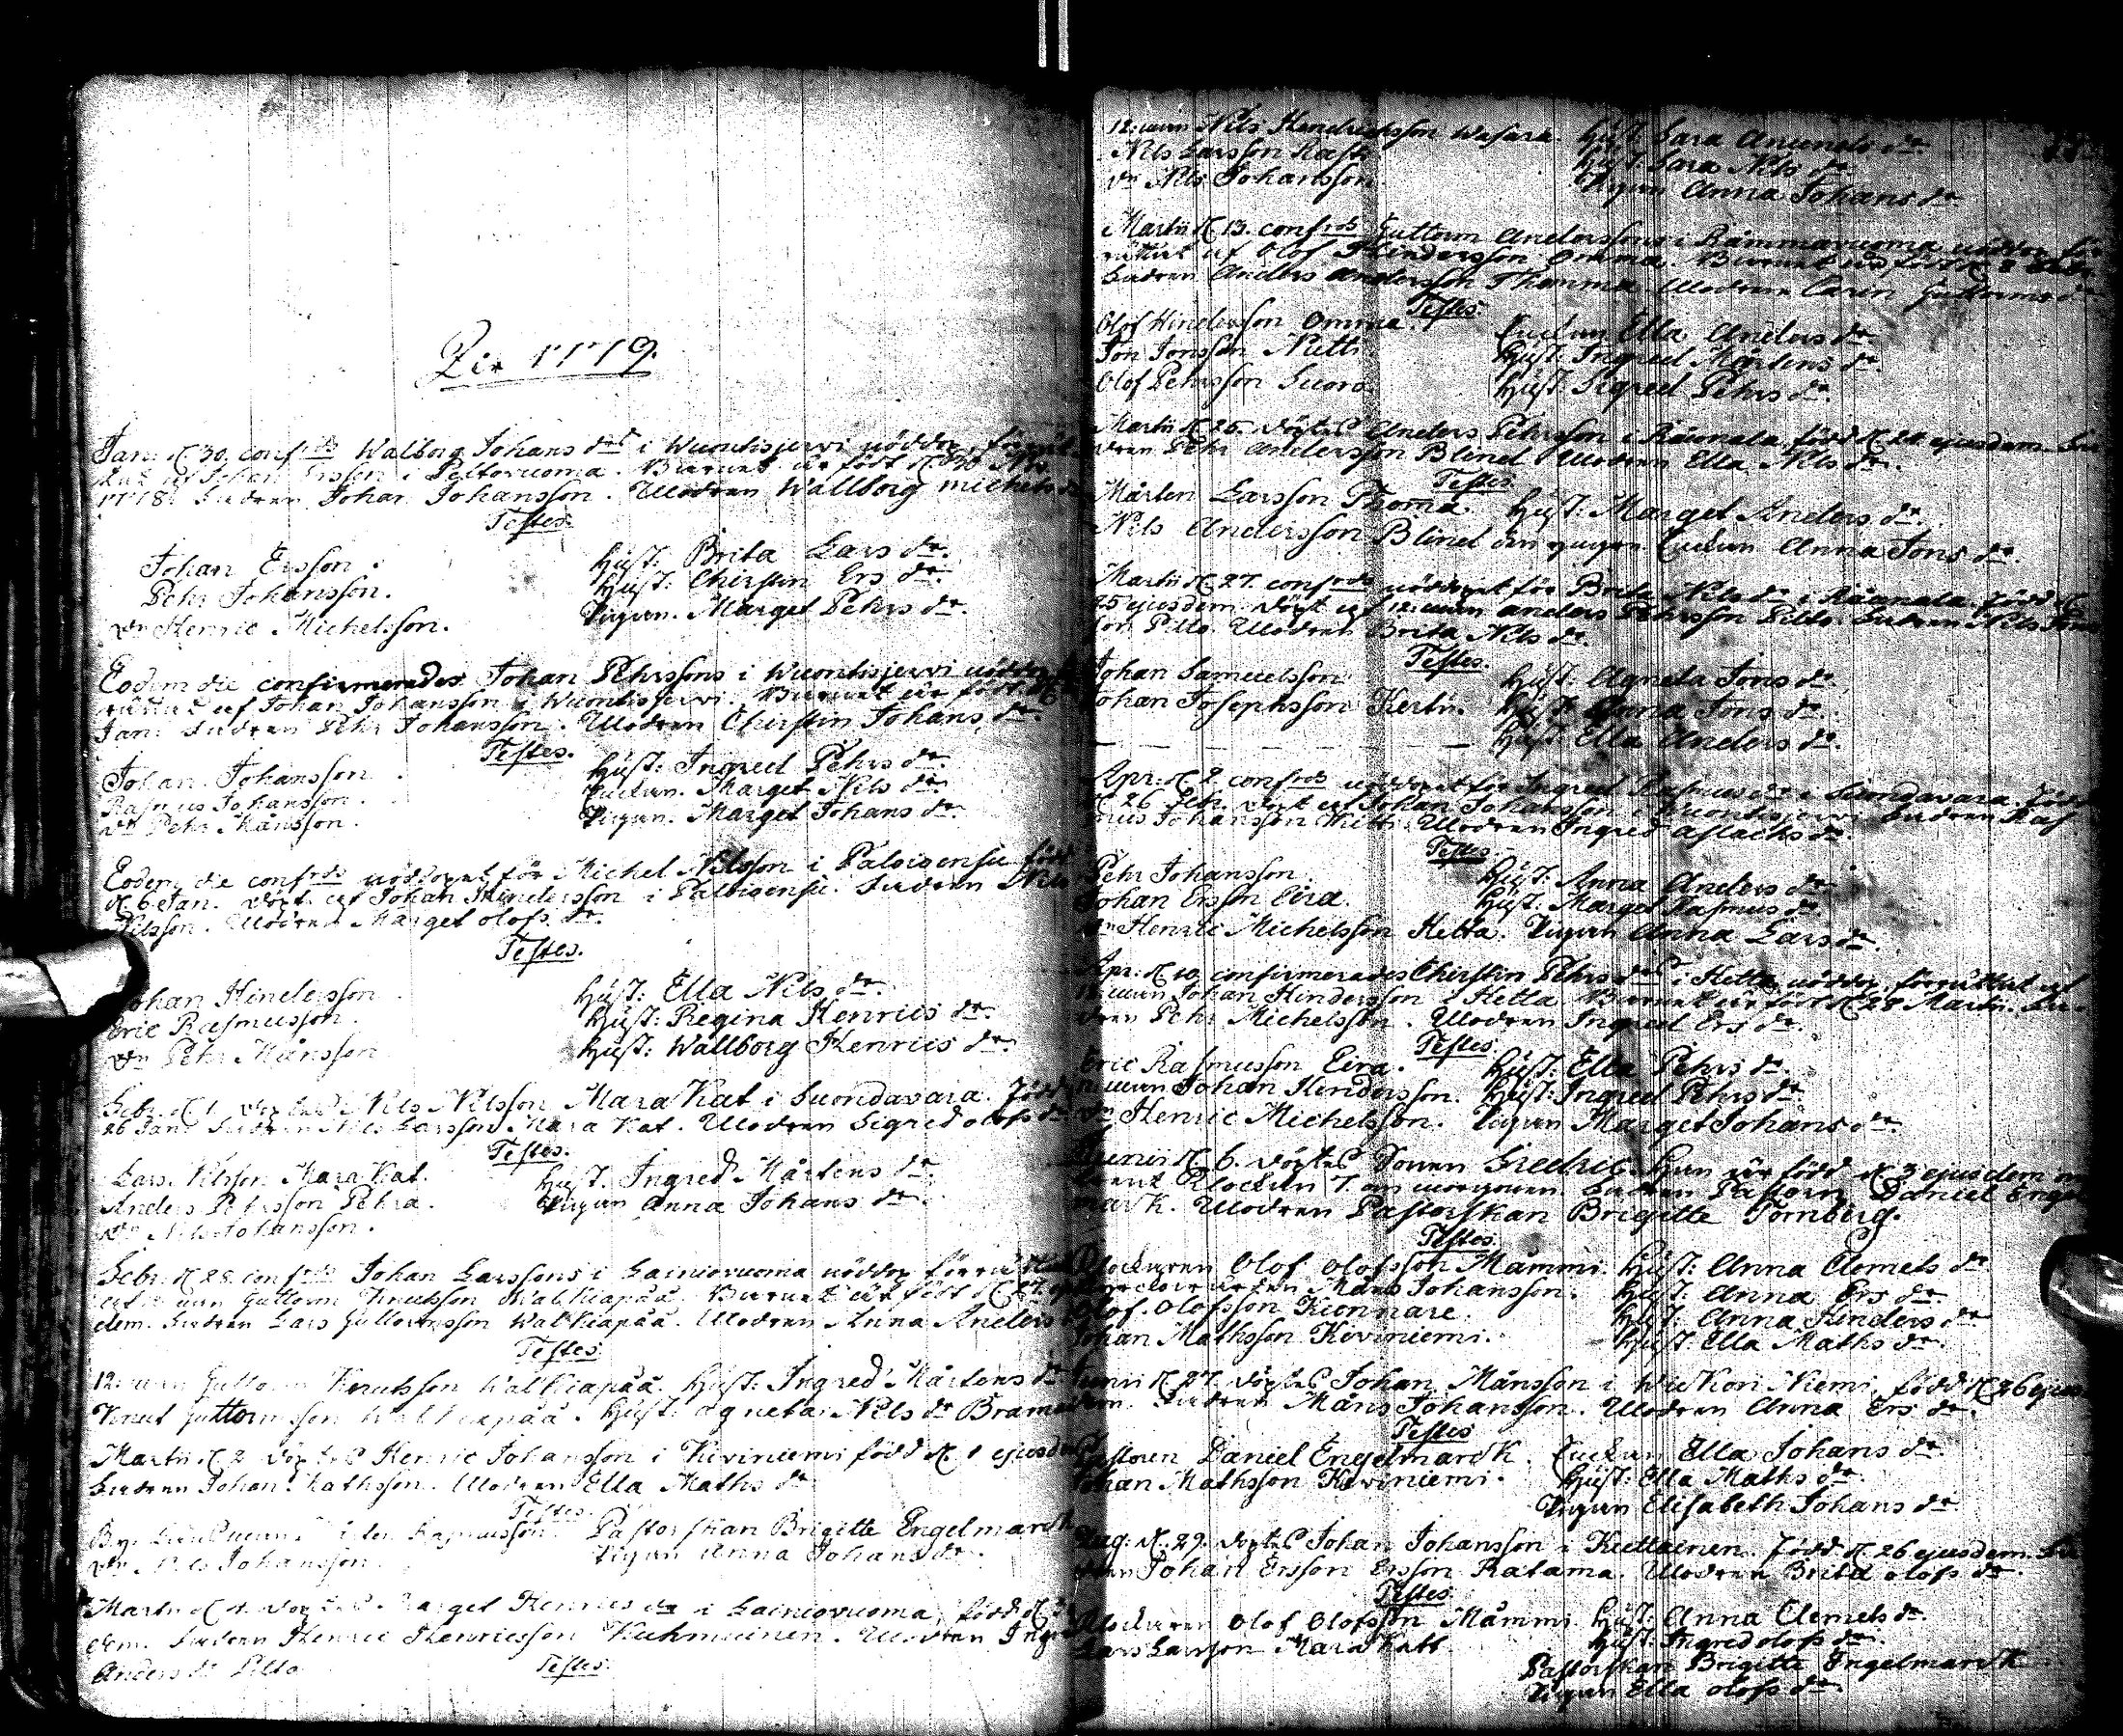 1779.
Jan: d. 30. conf:des Walborg Johans dr i Wuontisjervi nöddop, förrät-
tat af Johan Ersson i Peltovuoma. Barnet är födt d. 30
1778. Fadren Johan Johansson. Modren Wallborg Michels dr
Testes.
Johan Ersson. Hust: Brita Lars dr.
Pehr Johansson. Hust: Cherstin Ers dr.
dr: Henric Michelsson. Pigan. Marget Pehrs dr.
Eodem die confirmerades Johan Pehrssons i Wuontisjervi nöddop
af Johan Johansson i Wuontisjervi. Barnet är födt d.
Jan: Fadren Pehr Johansson. Modren Cherstin Johans dr.
Testes.
Johan Johansson. Hust: Ingred Pehrs dr.
Rasmus Johansson. Enckan. Marget Nils dr.
dr: Pehr Månsson. Pigan. Marget Johans dr.
Eodem die conf:des nöddopet för Michel Nilsson i Palois född
d. 6 Jan. döpt af Johan Hindersson i Palois. Fadren Nils
Nilsson. Modren Marget Olofs dr.
Testes.
Johan Hindersson Hust: Ella Nils dr.
Eric Rasmusson. Hust: Regina Henrics dr.
dr: Pehr Månsson Hust: Wallborg Henrics dr.
Febr. d. 1. döptes Nils Nilsson MaraKat i Suondavara. Född
26 Jan: Fadren Nils Larsson Mara Kat. Modren Sigred Olofs dr
Testes.
Lars Nilsson Mara Kat. Hust. Ingred Mårtens dr
Anders Pehrsson Pehra. Pigan Anna Johans dr.
dr: Nils Johansson.
Febr. d. 28. conf:des Johan Larssons i Lainiovuoma nöddop förrättat
af 12:man Guttorm Knutsson Walkiapää. Barnet är födt d. 27
dem. Fadren Lars Guttormsson Walkiapää. Modren Anna Anders
Testes.
12:man Guttorm Knutsson Walkiapää. Hust: Ingred Mårtens dr
Knut Guttormsson Walkiapää. Hust: Agneta Nils dr
Martii d. 2 döptes Henric Johansson i Kiviniemi född d. 1 ejusdem
Fadren Johan Mathsson. Modren Ella Maths dr
Testes.
Rasmusson Pastorskan Brigitte Engelmardk
dr: Nils Johansson. Pigan Anna Johans dr.
Martii d. döptes Marget Henrics dr i Lainiovuoma, född d.
dem. Fadren Henric Henricsson Kuhmuinen. Modren
Anders dr Pilto Testes.
12:man Nils Hendricksson Wasara. Hust. Sara Amunds dr.
Nils Larsson Rasti Hust: Sara Nils dr
dr Nils Johansson Pigan Anna Johans dr
Martii d. 13. conf:des Guttorm Anderssons i Råmmavuoma nöddop för-
rättat af Olof Hindersson Omma. Barnet är födt d. 8
Fadren Anders Andersson Thomma Modren Caren Guttorms dr
Testes.
Olof Hindersson Omma. Enckan Ella Anders dr
Jon Jonsson Nutti Hust: Ingred Mårtens dr.
Olof Pehrsson Suora Hust: Sigred Pehrs dr.
Martii d. 26. döptes Anders Pehrsson i Råunala född d. 20 ejusdem. Fa-
dren Pehr Andersson Blind Modren Ella Nils dr.
Testes.
Mårten Larsson Thoma. Hust: Marget Anders dr.
Nils Andersson Blind Enckan Anna Jons dr.
Martii d. 27. conf:des nöddopet för Brita Nils dr i Råunala. född d.
25 ejusdem. döpt af 12:man Anders Pehrsson Pilto. Fadren Nils
son Pilto. Modren Brita Nils dr.
Testes.
Johan Samuelsson Hust: Agneta Jons dr
Johan Josephsson Kertu. Hust: Anna Jons dr.
Hust: Ella Anders dr.
Apr: d. 2. conf:des nöddopet för Ingred Rasmus dr i Suondavara. Född
d. 26 Febr. döpt af Johan Johansson i Wuontisjervi Fadren Ras-
mus Johansson Kitti. Modren Ingred Aslacks dr.
Testes.
Pehr Johansson. Hust: Anna Anders dr
Johan Ersson Eira. Hust: Marget Rasmus dr.
dr: Henric Michelsson Hetta. Pigan Anna Lars dr.
Apr: d. 10. confirmerades Cherstin Pehrs dr i Hetta nöddop, förrättat af
12:man Johan Hindersson i Hetta Barnet är födt d. 28 Martii. Fa-
dren Pehr Michelsson. Modren Ingred Ers dr.
Testes
Eric Rasmusson Eira. Hust: Ella Pehrs dr.
12:man Johan Hindersson. Hust: Ingred Pehrs dr
dr: Henric Michelsson. Pigan Marget Johans dr.
Junii d. 6. döptes Sonen Fredric. Han är född d. 3 ejusdem
Klockan 7. om morgonen. Fadren Pastorn Daniel Engel-
mark. Modren Pastorskan Brigitte Tornberg.
Testes.
Klockaren Olof Olofsson Mämmi. Hust: Anna Clemets dr
Måns Johansson. Hust: Anna Ers dr.
Olof Olofsson Kionnare. Hust: Anna Hinders dr
Johan Mathsson Kiviniemi. Hust: Ella Maths dr.
Junii d. 27. döptes Johan Månsson i WuKori Niemi, född d. 26 ejus-
dem. Fadren Måns Johansson. Modren Anna Ers dr.
Testes
Pastoren Daniel Engelmardk. Enckan Ella Johans dr
Johan Mathsson Kiviniemi. Hust: Ella Maths dr.
Pigan Elisabeth Johans dr
Aug: d. 29. döptes Johan Johansson i Kuttainen. Född d. 26 ejusdem. Fa-
dren Johan Ersson Ersson Ratama. Modren Brita Olofs dr.
Testes
Klockaren Olof Olofsson Mämmi Hust: Anna Clemets dr.
Lars Larsson MaraKatt Hust: Ingred Olofs dr.
Pastorskan Brigitte Engelmardk
Pigan Ella Olofs dr